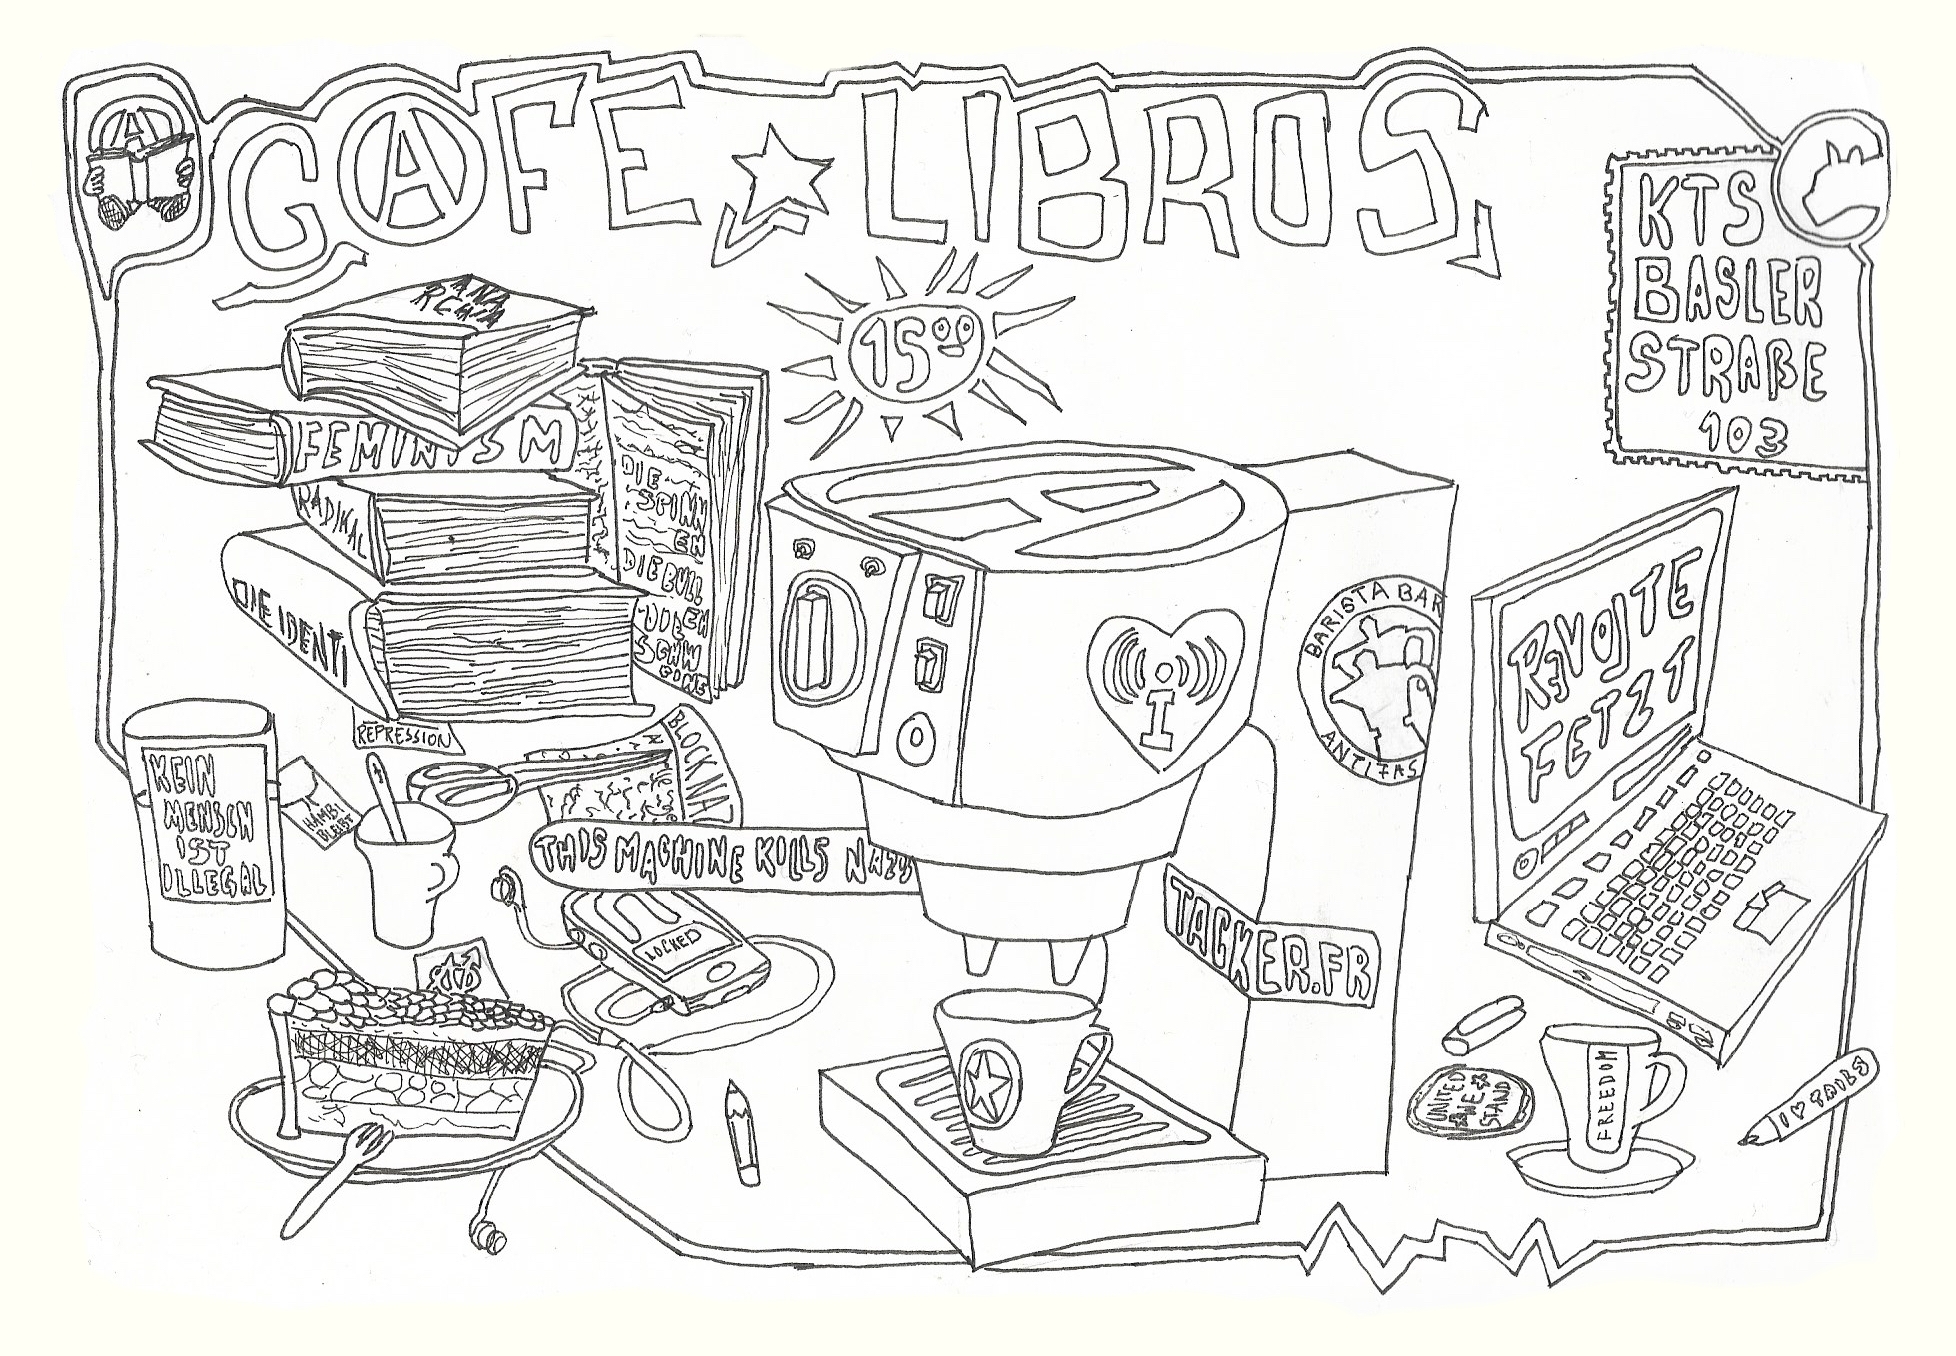 CAFE LIBROS
KTS
BASLER
STRAßE
103
15⁰⁰
ANA
RCHA
FEMINISM
RADIKAL
DIE IDENTI
DIE
SPINN
EN
DIE BULL
EN
DIE
SCHW
EINE
REPRESSION
BLOCK NA
HAMBI
BLEIBT
KEIN
MENSCH
IST
ILLEGAL
THIS MACHINE KILLS NAZIS
LOCKED
I
BARISTA BAR
ANTIFAS
TACKER.FR
REVOLTE
FETZT
UNITED
WE
STAND
FREEDOM
I ♥ TAILS